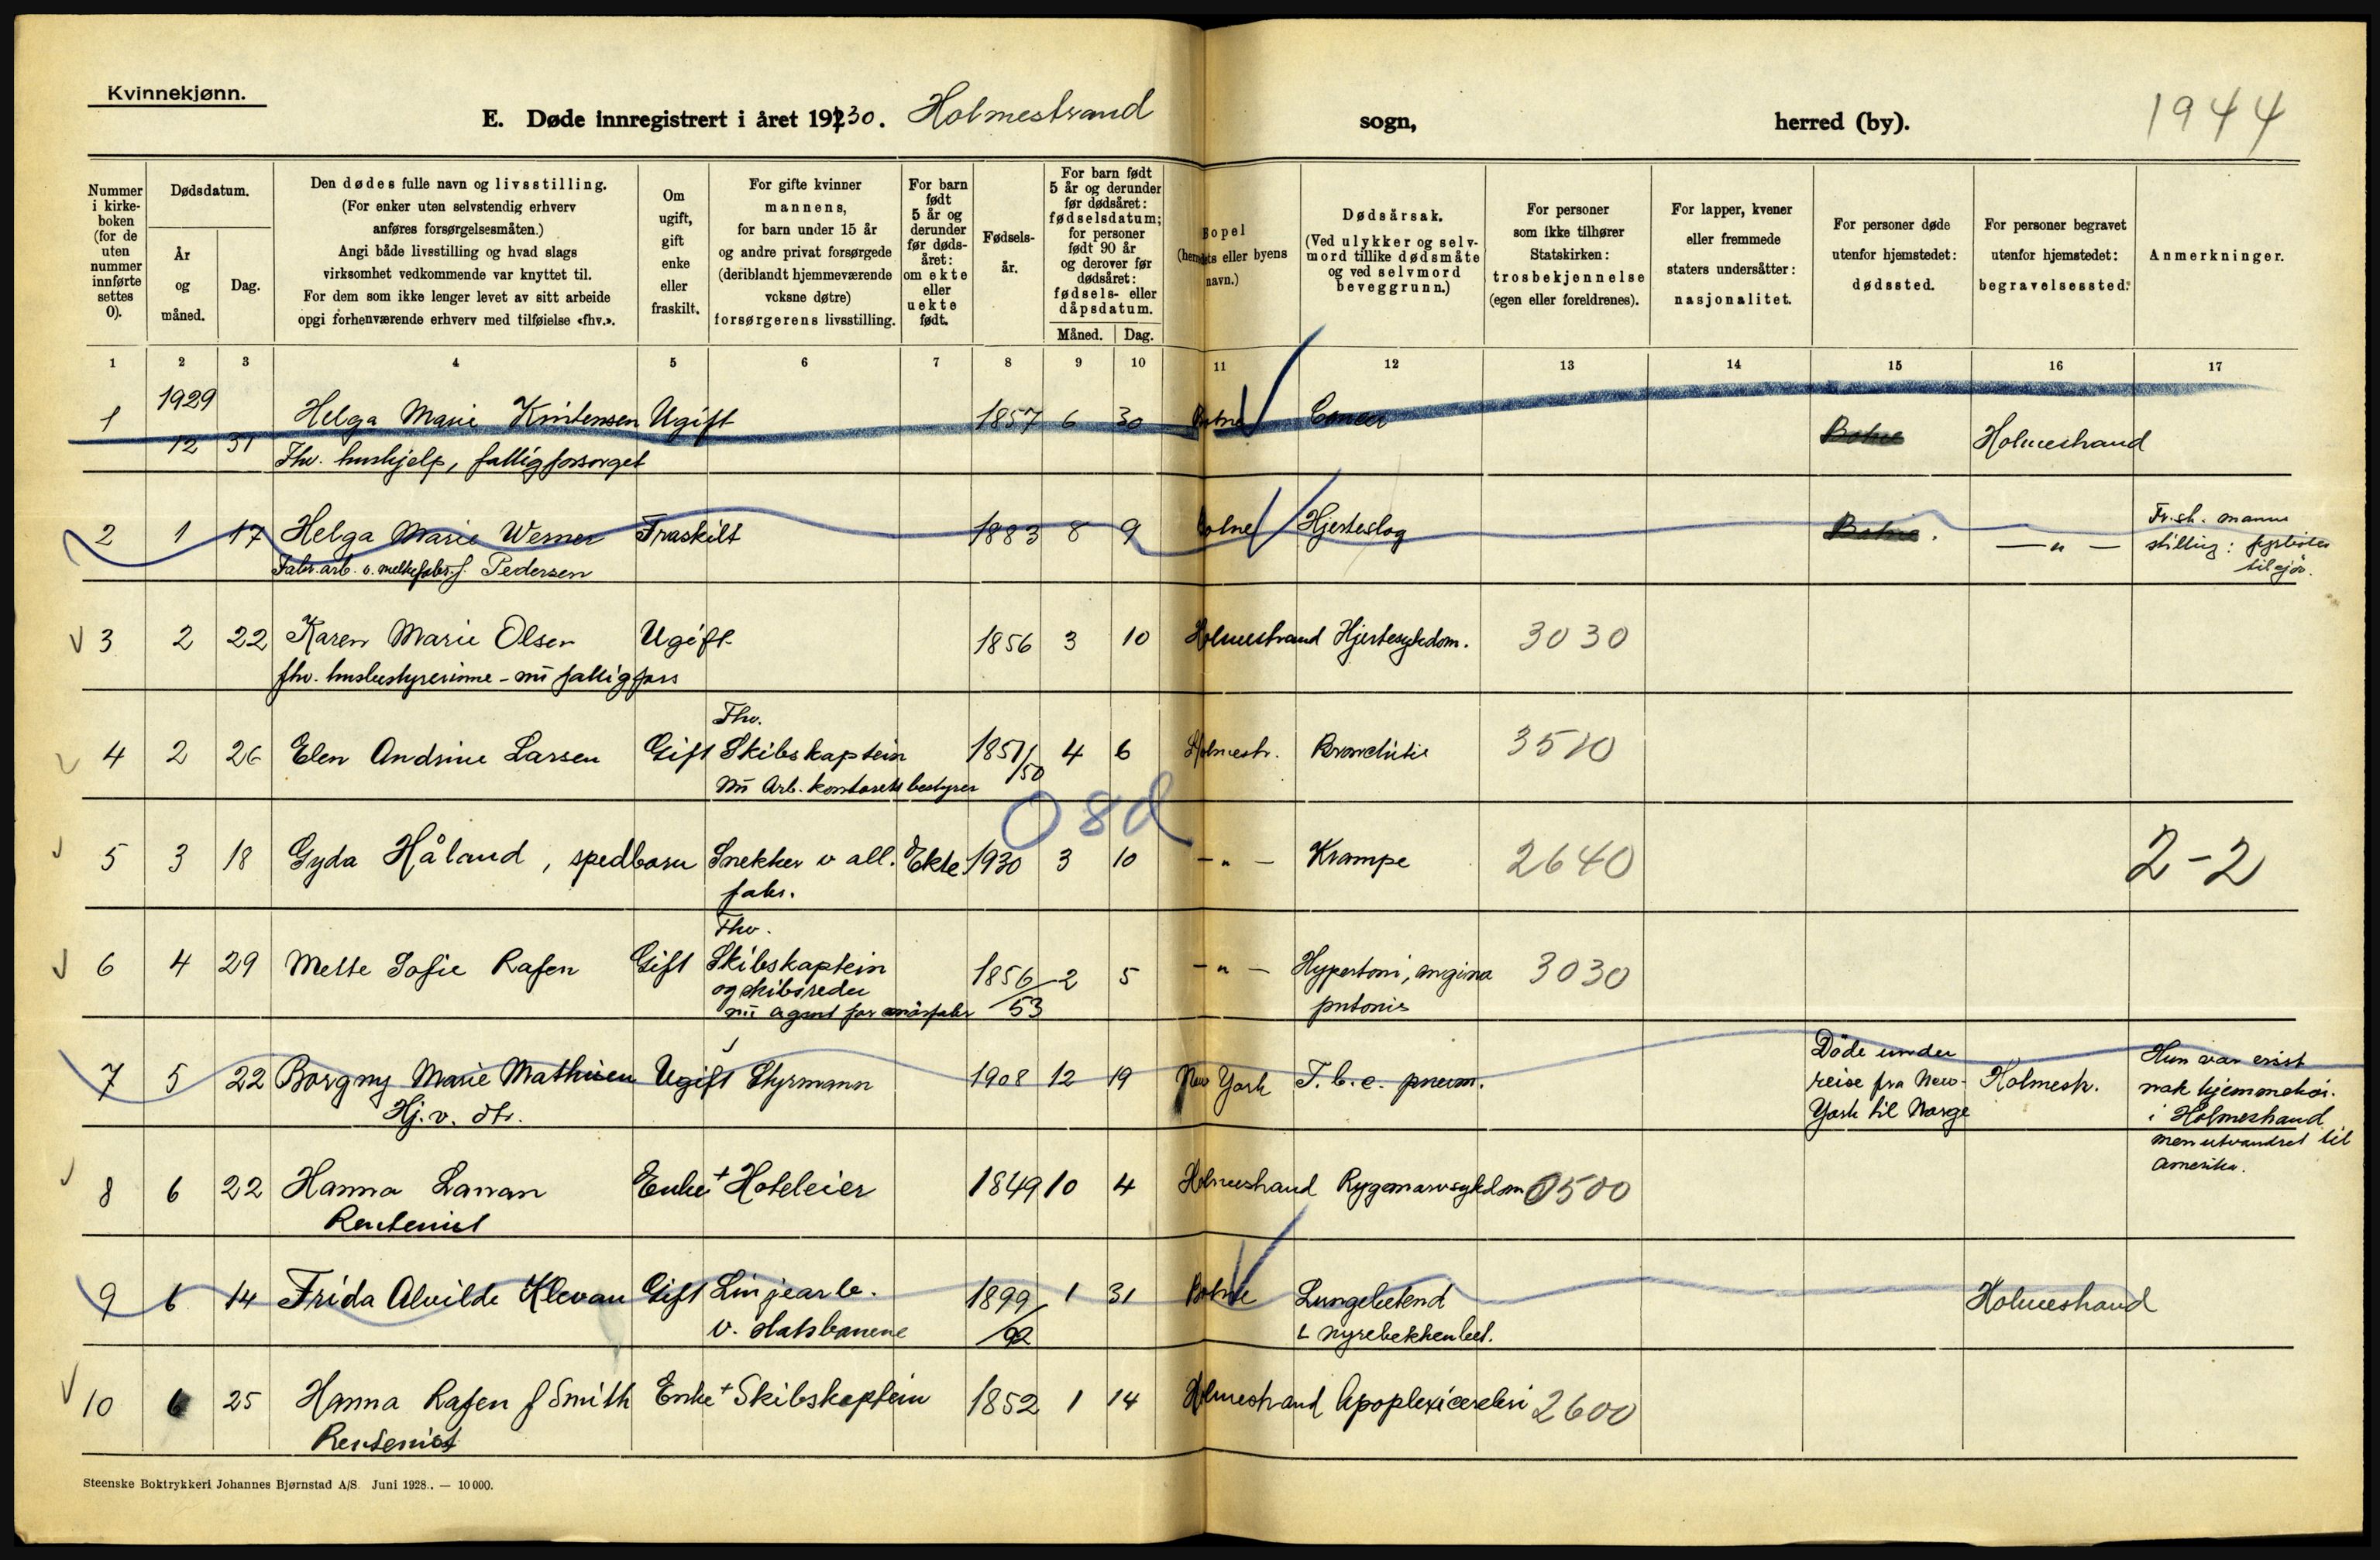 Kvinnekjønn.
E. Døde innregistrert i året 1930. Holmestrand sogn, herred (by). 1944
Nummer i kirkeboken (for de uten nummer innførte settes 0).
Dødsdatum.
År og måned.
Dag.
Den dødes fulle navn og livsstilling.
(For enker uten selvstendig erhverv
anføres forsørgelsesmåten.)
Angi både livsstilling og hvad slags
virksomhet vedkommende var knyttet til.
For dem som ikke lenger levet av sitt arbeide
opgi forhenværende erhverv med tilføielse «fhv.».
Om ugift, gift enke eller fraskilt.
For gifte kvinner
mannens,
for barn under 15 år
og andre privat forsørgede
(deriblandt hjemmeværende
voksne døtre)
forsørgerens livsstilling.
For barn født 5 år og derunder før dødsåret: om ekte eller uekte født.
Fødselsår.
For barn født 5 år og derunder før dødsåret: fødselsdatum; for personer født 90 år og derover før dødsåret: fødsels- eller dåpsdatum.
Måned. Dag.
Bopel
(herredets eller byens
navn.)
Dødsårsak.
(Ved ulykker og selvmord tillike dødsmåte og ved selvmord beveggrunn.)
For personer
som ikke tilhører
Statskirken:
trosbekjennelse
(egen eller foreldrenes).
For lapper, kvener
eller fremmede
staters undersåtter:
nasjonalitet.
For personer døde
utenfor hjemstedet:
dødssted.
For personer begravet
utenfor hjemstedet:
begravelsessted.
Anmerkninger.
1 2 3 4 5 6 7 8 9 10 11 12 13 14 15 16 17
1929
1 12 31 Helga Marie Ugift 1857 6 30 Botne Cancer Botne Holmestrand
Fhv. hushjelp, fattigforsørget
2 1 17 Helga Marie Werner Fraskilt 1883 8 9 Botne Hjerteslag Botne. — " — Fr.sk. manns
Fabr.arb. v. melkefabr. f. Pedersen stilling:
3 2 22 Karen Marie Olsen Ugift 1856 3 10 Holmestrand Hjertesykdom. 3030
fhv. husbestyrerinne - nu fattigfors
Fhv.
4 2 26 Elen Andrine Larsen Gift Skibskaptein 1851/50 4 6 Holmestr. Bronchitis 3510
nu Arb. kontorets bestyrer
08d
5 3 18 Gyda Håland, spedbarn Snekker v all. Ekte 1930 3 10 — " — Krampe 2640 2-2
fabr.
Fhv.
6 4 29 Mette Sofie Rafen Gift Skibskaptein 1856/53 2 5 — " — Hypertoni, angina 3030
og skibsreder
nu agent for pectoris
7 5 22 Borgny Marie Mathisen Ugift Styrmann 1908 12 19 New York T.b.c. pneum. Døde under
reise fra New-
York til Norge Holmestr. Hun var
Hj. v. dtr. hjemmehør.
i Holmestrand
men utvandret til
Amerika.
8 6 22 Hanna Lanan Enke + Hoteleier 1849 10 4 Holmestrand Rygemarvsykdom 0500
Rentenist
9 6 14 Frida Alvilde Klevan Gift Linjearb. 1899/92 1 31 Botne Lungebetend Holmestrand
v. statsbanene & nyrebekkenbet.
10 6 25 Hanna Rafen f Smith Enke + Skibskaptein 1852 1 14 Holmestrand Apoplexi cerebri 2600
Rentenist
Steenske Boktrykkeri Johannes Bjørnstad A/S. Juni 1928. — 10 000.